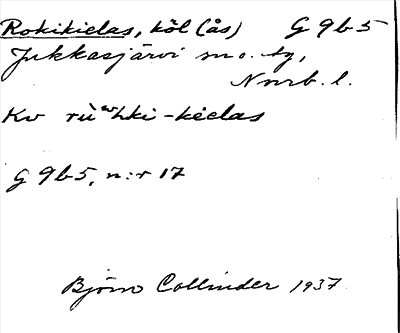 Rokikielas, köl (ås) G 9 b 5
Jukkasjärvi sn o. tg,
Nnrb. l.
Kv rù͏ʷhki-kèelas
G 9 b 5, n:r 17
Björn Collinder 1937